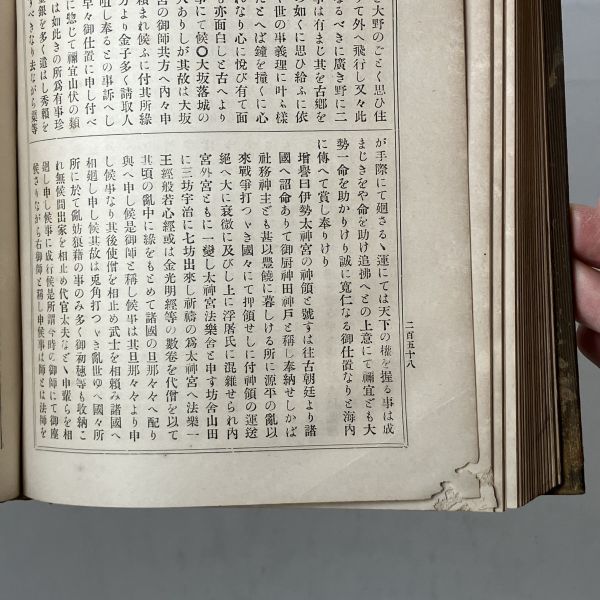 大野のごとく思ひ住
て外へ飛行し又々此
なるべきに廣き野に二
事は有まじ其を古郷を
の如くに思ひ給ふに依
世の事義理に叶ふ樣
たとへば鐘を撞くに心
れなり心に悅び有て面
も亦面白しと古へより
事にて候〇大坂落城の
大ありしが其故は大坂
宮の御師共方へ內々申
賴まれ候ふに付其所緣
方より金子多く請取人
咀し奉るとの事訴へし
早々御仕置に申し付べ
に惣じて禰宜山伏の類
は如此きの所爲有事珍
銀を多く遣はし秀賴を
すべきなり法ながら棄等
二百五十八
が手際にて廻さるゝ運にては天下の權を握る事は成
まじきをや命を助け追拂へとの上意にて禰宜ども大
勢一命を助かりけり誠に寬仁なる御仕置なりと海內
に傳へて賞し奉りけり
增譽曰伊勢太神宮の神領と號すは往古朝廷より諸
國へ詔命ありて御厨神田神戶と稱し奉納せしかば
社務神主ども甚以豐饒に暮しける所に源平の亂以
來戰爭打つゞき國々にて押領せしに付神領の運送
絕へ大に衰微に及びし上に浮屠氏に混雜せられ內
宮外宮ともに一變し太神宮法樂舍と申す坊舍山田
に三坊宇治に七坊出來し祈禱の爲太神宮へ法樂一
王經般若心經或は金光明經等の數卷を代僧を以て
其頃の亂中に緣をもとめて諸國の旦那々々へ配り
與へ申し候是御師と稱し候事は其旦那々々より申
し候事なり其後使僧を相止め武士を相賴み諸國へ
相廻し申し候其故は兎角打つゞき亂世ゆへ國々所
所に於て亂妨狼藉の事のみ多く御初穗等も收納こ
れ無候間出家を相止め代官太夫などゝ申輩らを相
廻し申し候事に成行候是所謂今時の御師にて御座
候さりながら右御師と稱し申候事は師とは法師を